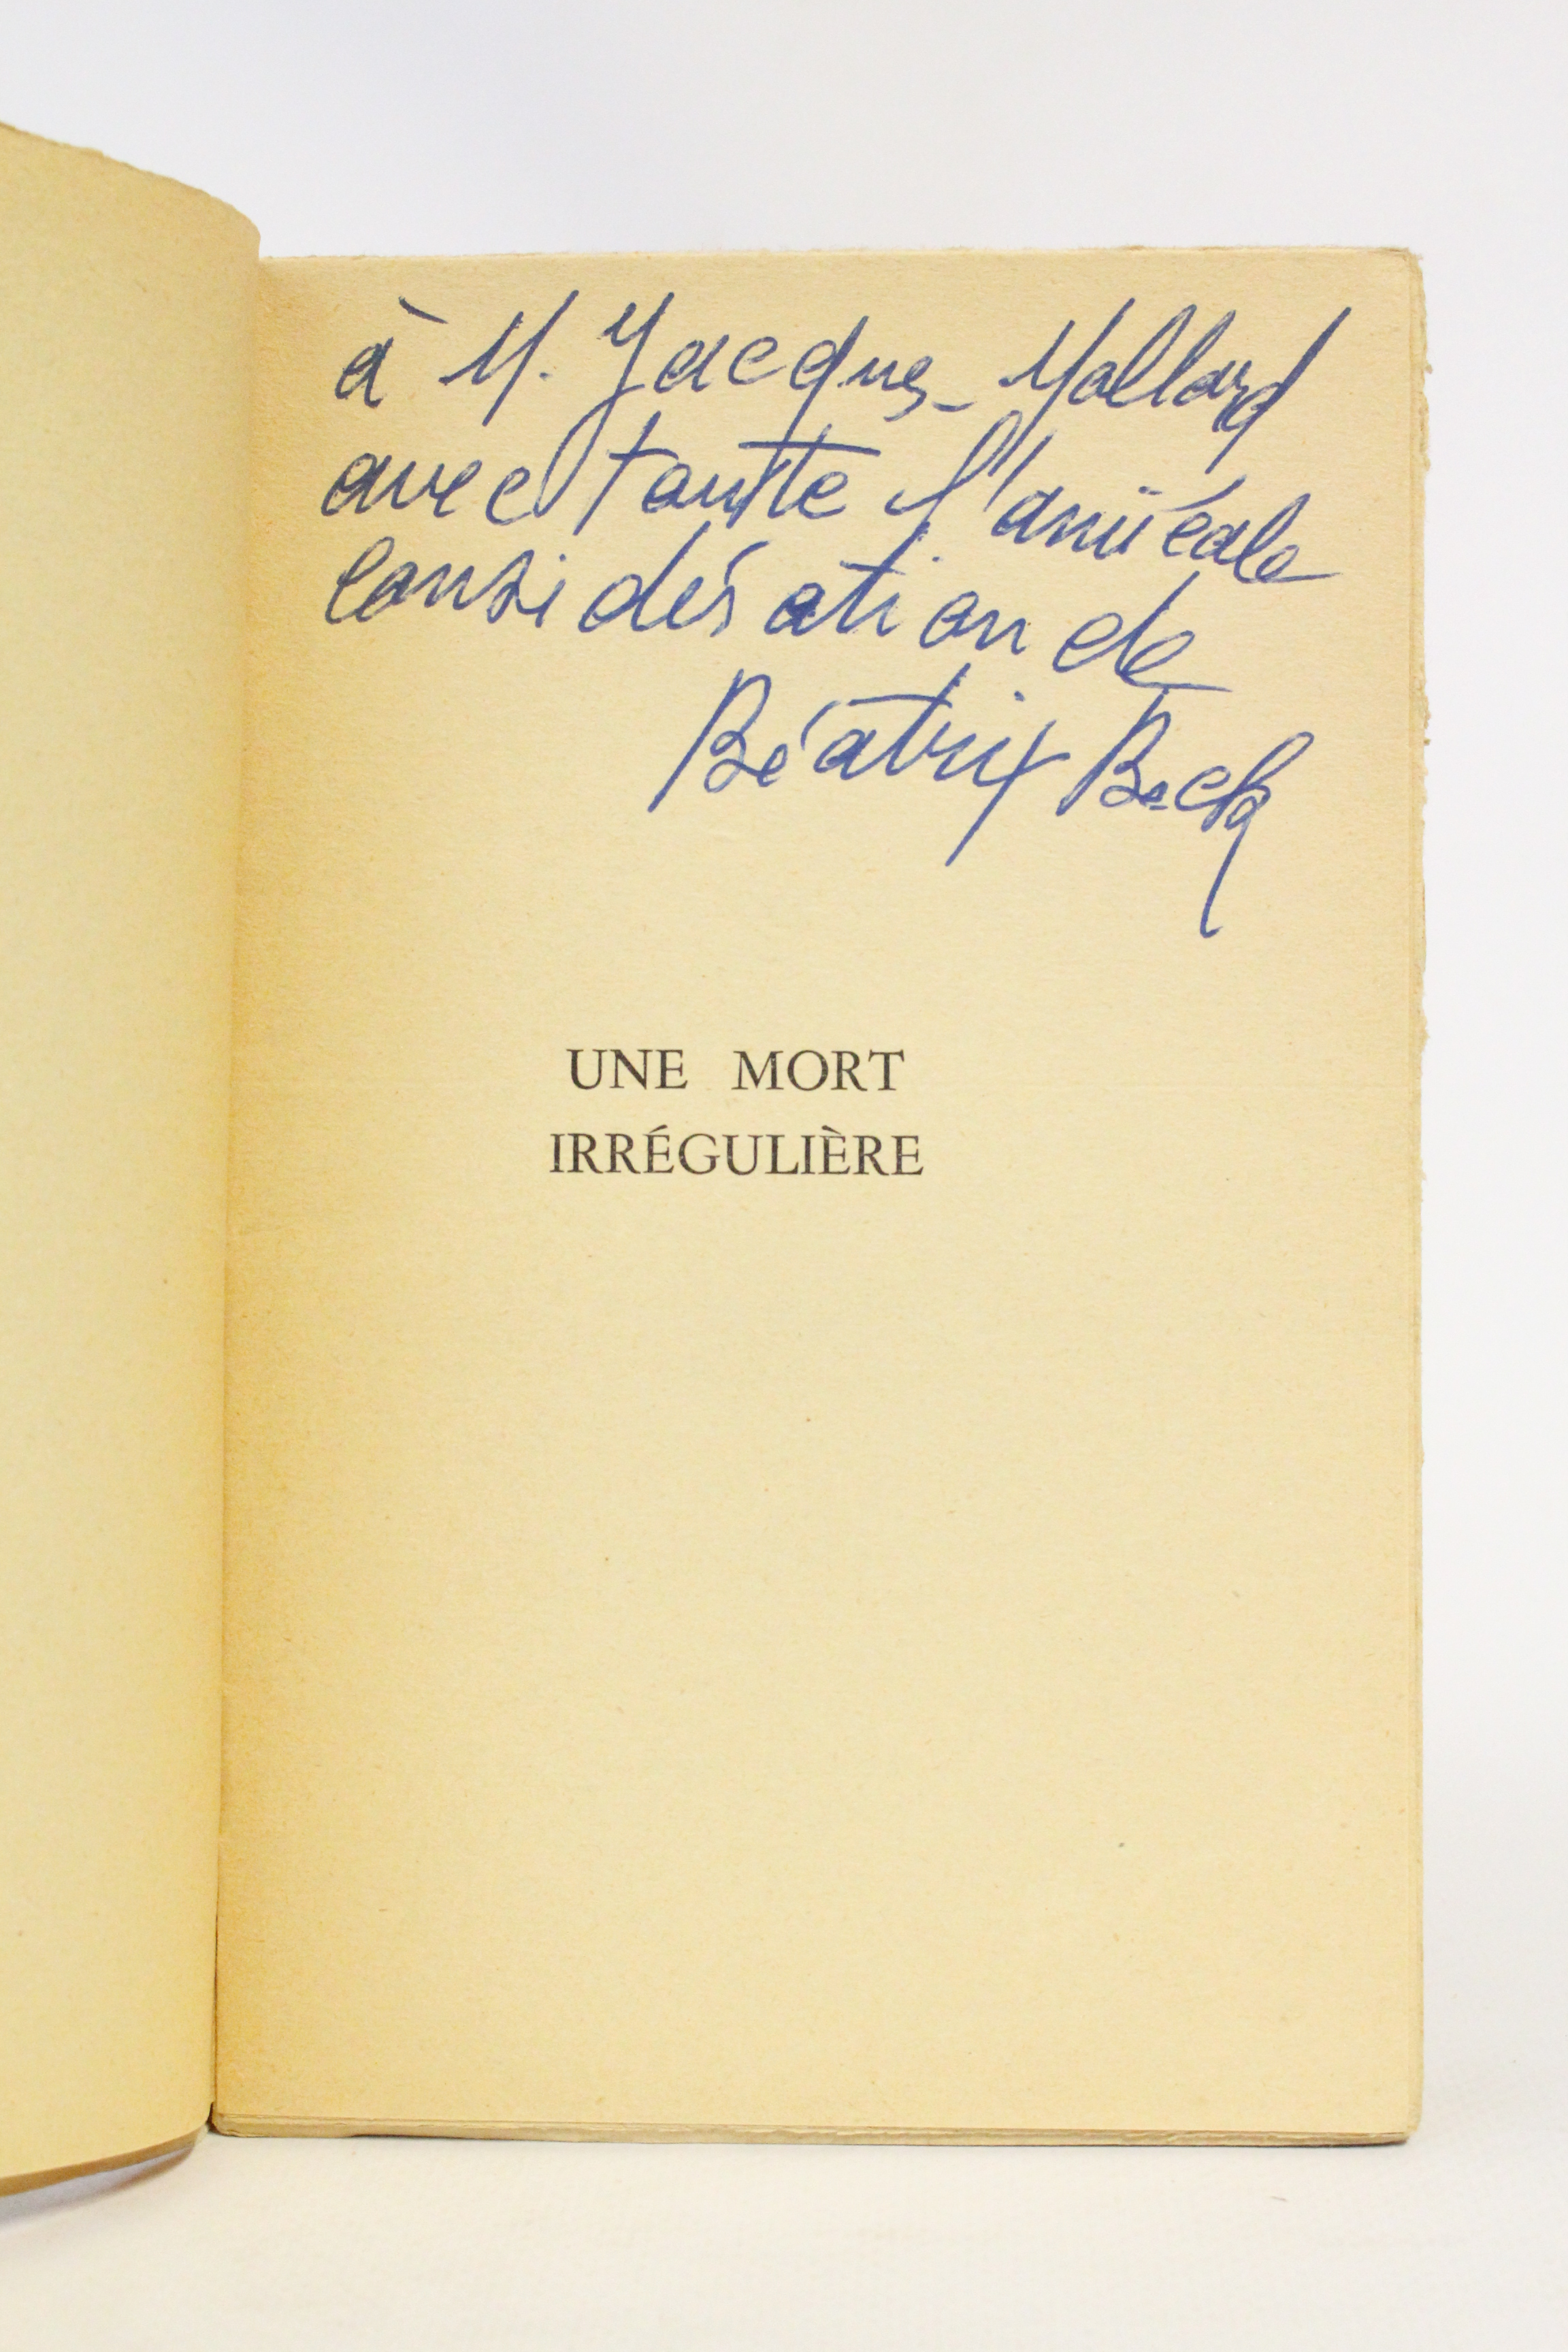 à M. Jacques Mallard
avec toute l'amicale
considération de
Béatrix Beck
UNE MORT
IRRÉGULIÈRE